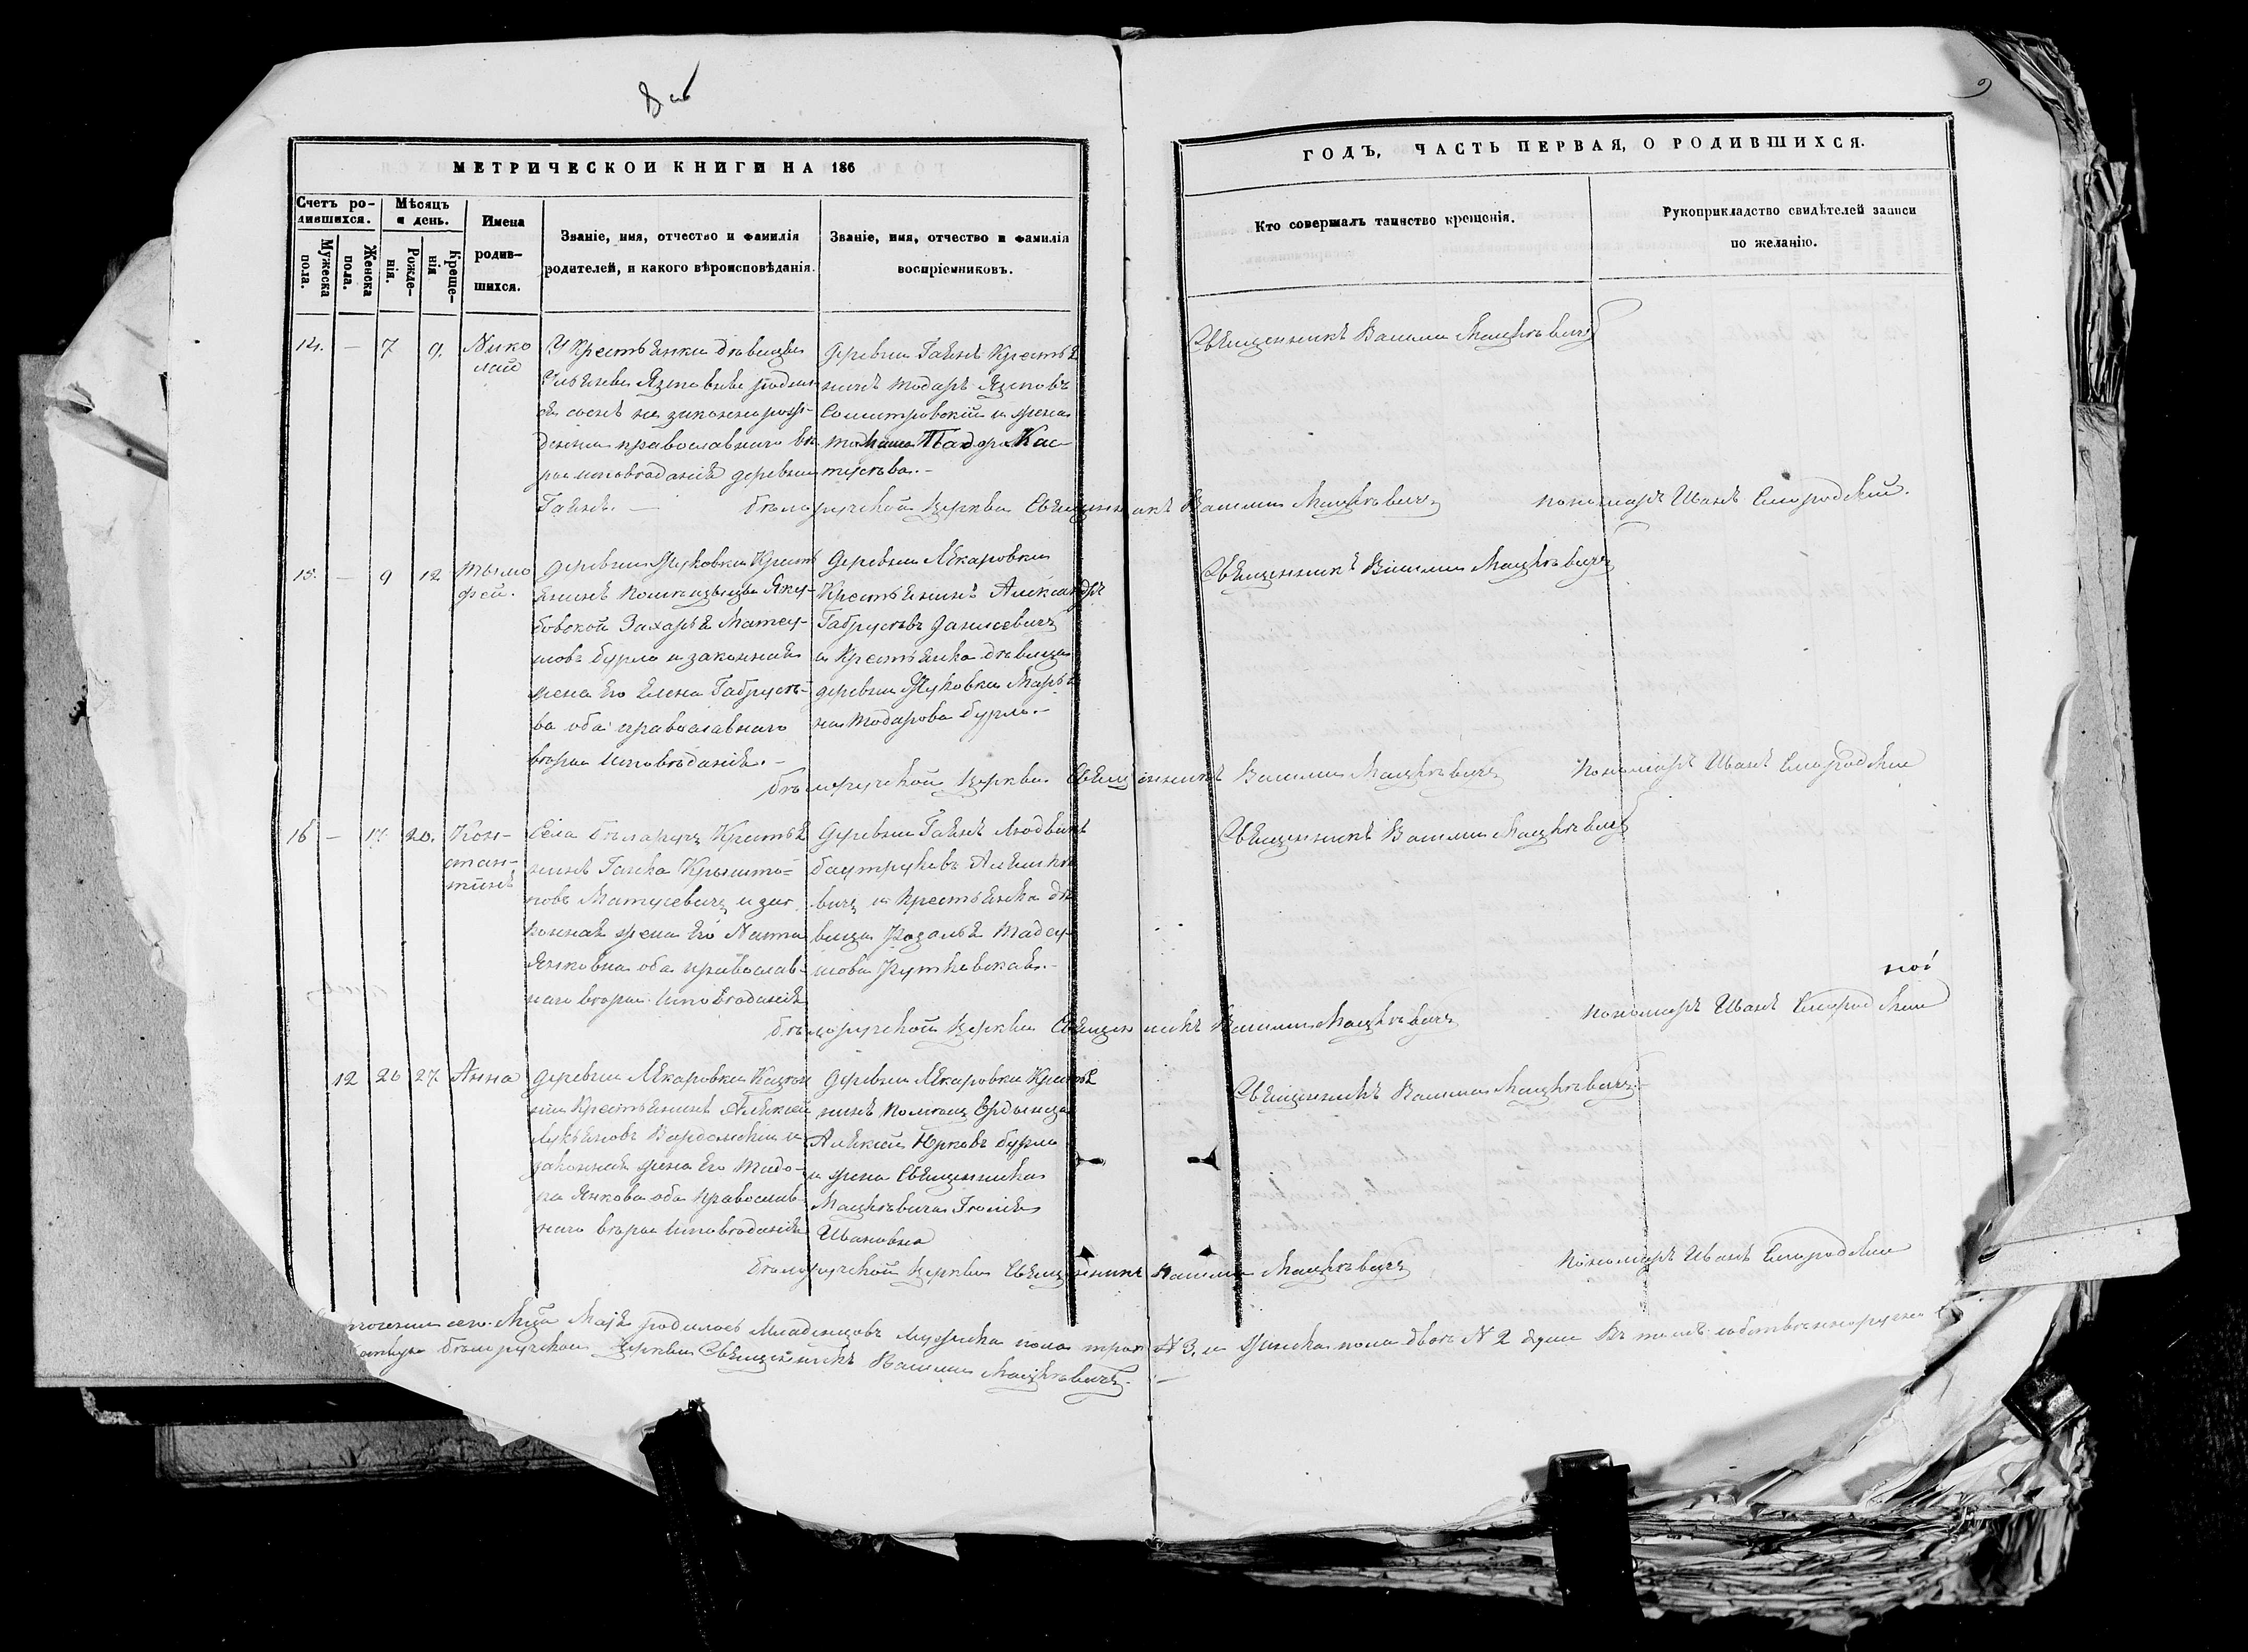 8 об
9
МЕТРИЧЕСКОИ КНИГИ НА 186
ГОДЪ, ЧАСТЬ ПЕРВАЯ, О РОДИВШИХСЯ.
Счетъ ро-
дившихся.
Мужеска пола.
Женска пола.
Мѣсяцъ
и день.
Рожде-
нія.
Креще-
нія
Имена
родив-
шихся.
Званіе, имя, отчество и фамилія
родителей, и какого вѣроисповѣданія.
Званіе, имя, отчество и фамилія
воспріемниковъ.
Кто совершалъ таинство крещенія.
Рукоприкладство свидѣтелей записи
по желанію.
14. — 7 9.
Нико
лай
У Крестьянки дѣвицы
Язповны родил
ся сынъ не законнорож-
денни православнаго вѣ
рои исповѣданія деревни
Гаянъ. —
деревни Гаянъ Крестья
нинъ тодаръ Язповъ
и жена
Кас-
Священникъ Васили Мацкевичъ
бѣлоручской Церкви Священникъ Васили Мацкевичъ
пономаръ Иванъ Смородскій.
15. — 9 12
Тымо
фей.
деревни Жуковки Крест
янинъ помѣщыцы Яку-
бовской Захарья Матеу-
шовъ бурло и законная
жена Его Елена Габруев-
ва оба православнаго
вѣрои исповѣданія. —
деревни Макаровки
Крестьянинъ Александръ
Габруевъ Данисевичъ
и Крестьянка дѣвица
деревни Жуковки Марья
на Тодарова бурло. —
Священникъ Васили Мацкевичъ
бѣлоручской Церкви Священникъ Васили Мацкевичъ
пономаръ Иванъ Смородскии
16 — 17. 20.
Кон-
стан-
тинъ
Села бѣларучъ Крестья
нинъ Ганка Крышто-
повъ Матусевичъ и зак
конная жена Его Наста
Янковна оба православ-
наго вѣрои исповѣданія
деревни Гаянъ Людвикъ
баутруковъ Аляшке
вичъ и Крестьянка дѣ
вица Розалья Тадеу-
шова Рутковская. —
Священникъ Васили Мацкевичъ
бѣлоручской Церкви Священникъ Васили Мацкевичъ
пономаръ Иванъ Смородскии
ной
12 26 27.
Анна
деревни Макаровки Казюн
ній Крестьянинъ Алексей
Лукьяновъ и
законная жена Его Тадо-
ра Янкова оба православ-
наго вѣрои исповѣданія
деревни Макаровки Крестья
нинъ помѣщ
Алексей Юрковъ бурло
и жена Священника
Мацкевича
Ивановна
Священникъ Васили Мацкевичъ
бѣлоручской Церкви Священникъ Васили Мацкевичъ
пономаръ Иванъ Смородскии
сего Мца Мая родилось Младенцовъ Мужска пола трое N 3, и Женска пола двоя N 2 души Въ томъ собственноручно
бѣлоручской Церкви Священникъ Васили Мацкевичъ. —